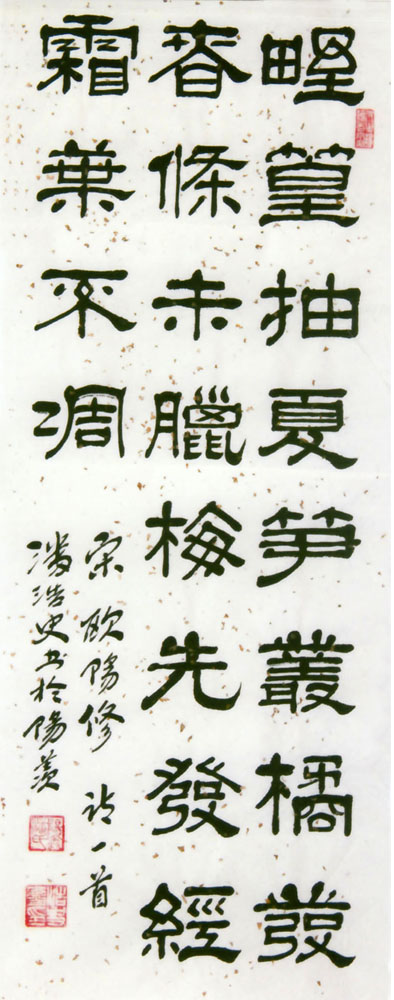 野篁抽夏笋叢橘發
春條未臘梅先發經
霜葉不凋
宋歐陽修詩一首
潘浩史书於陽羨